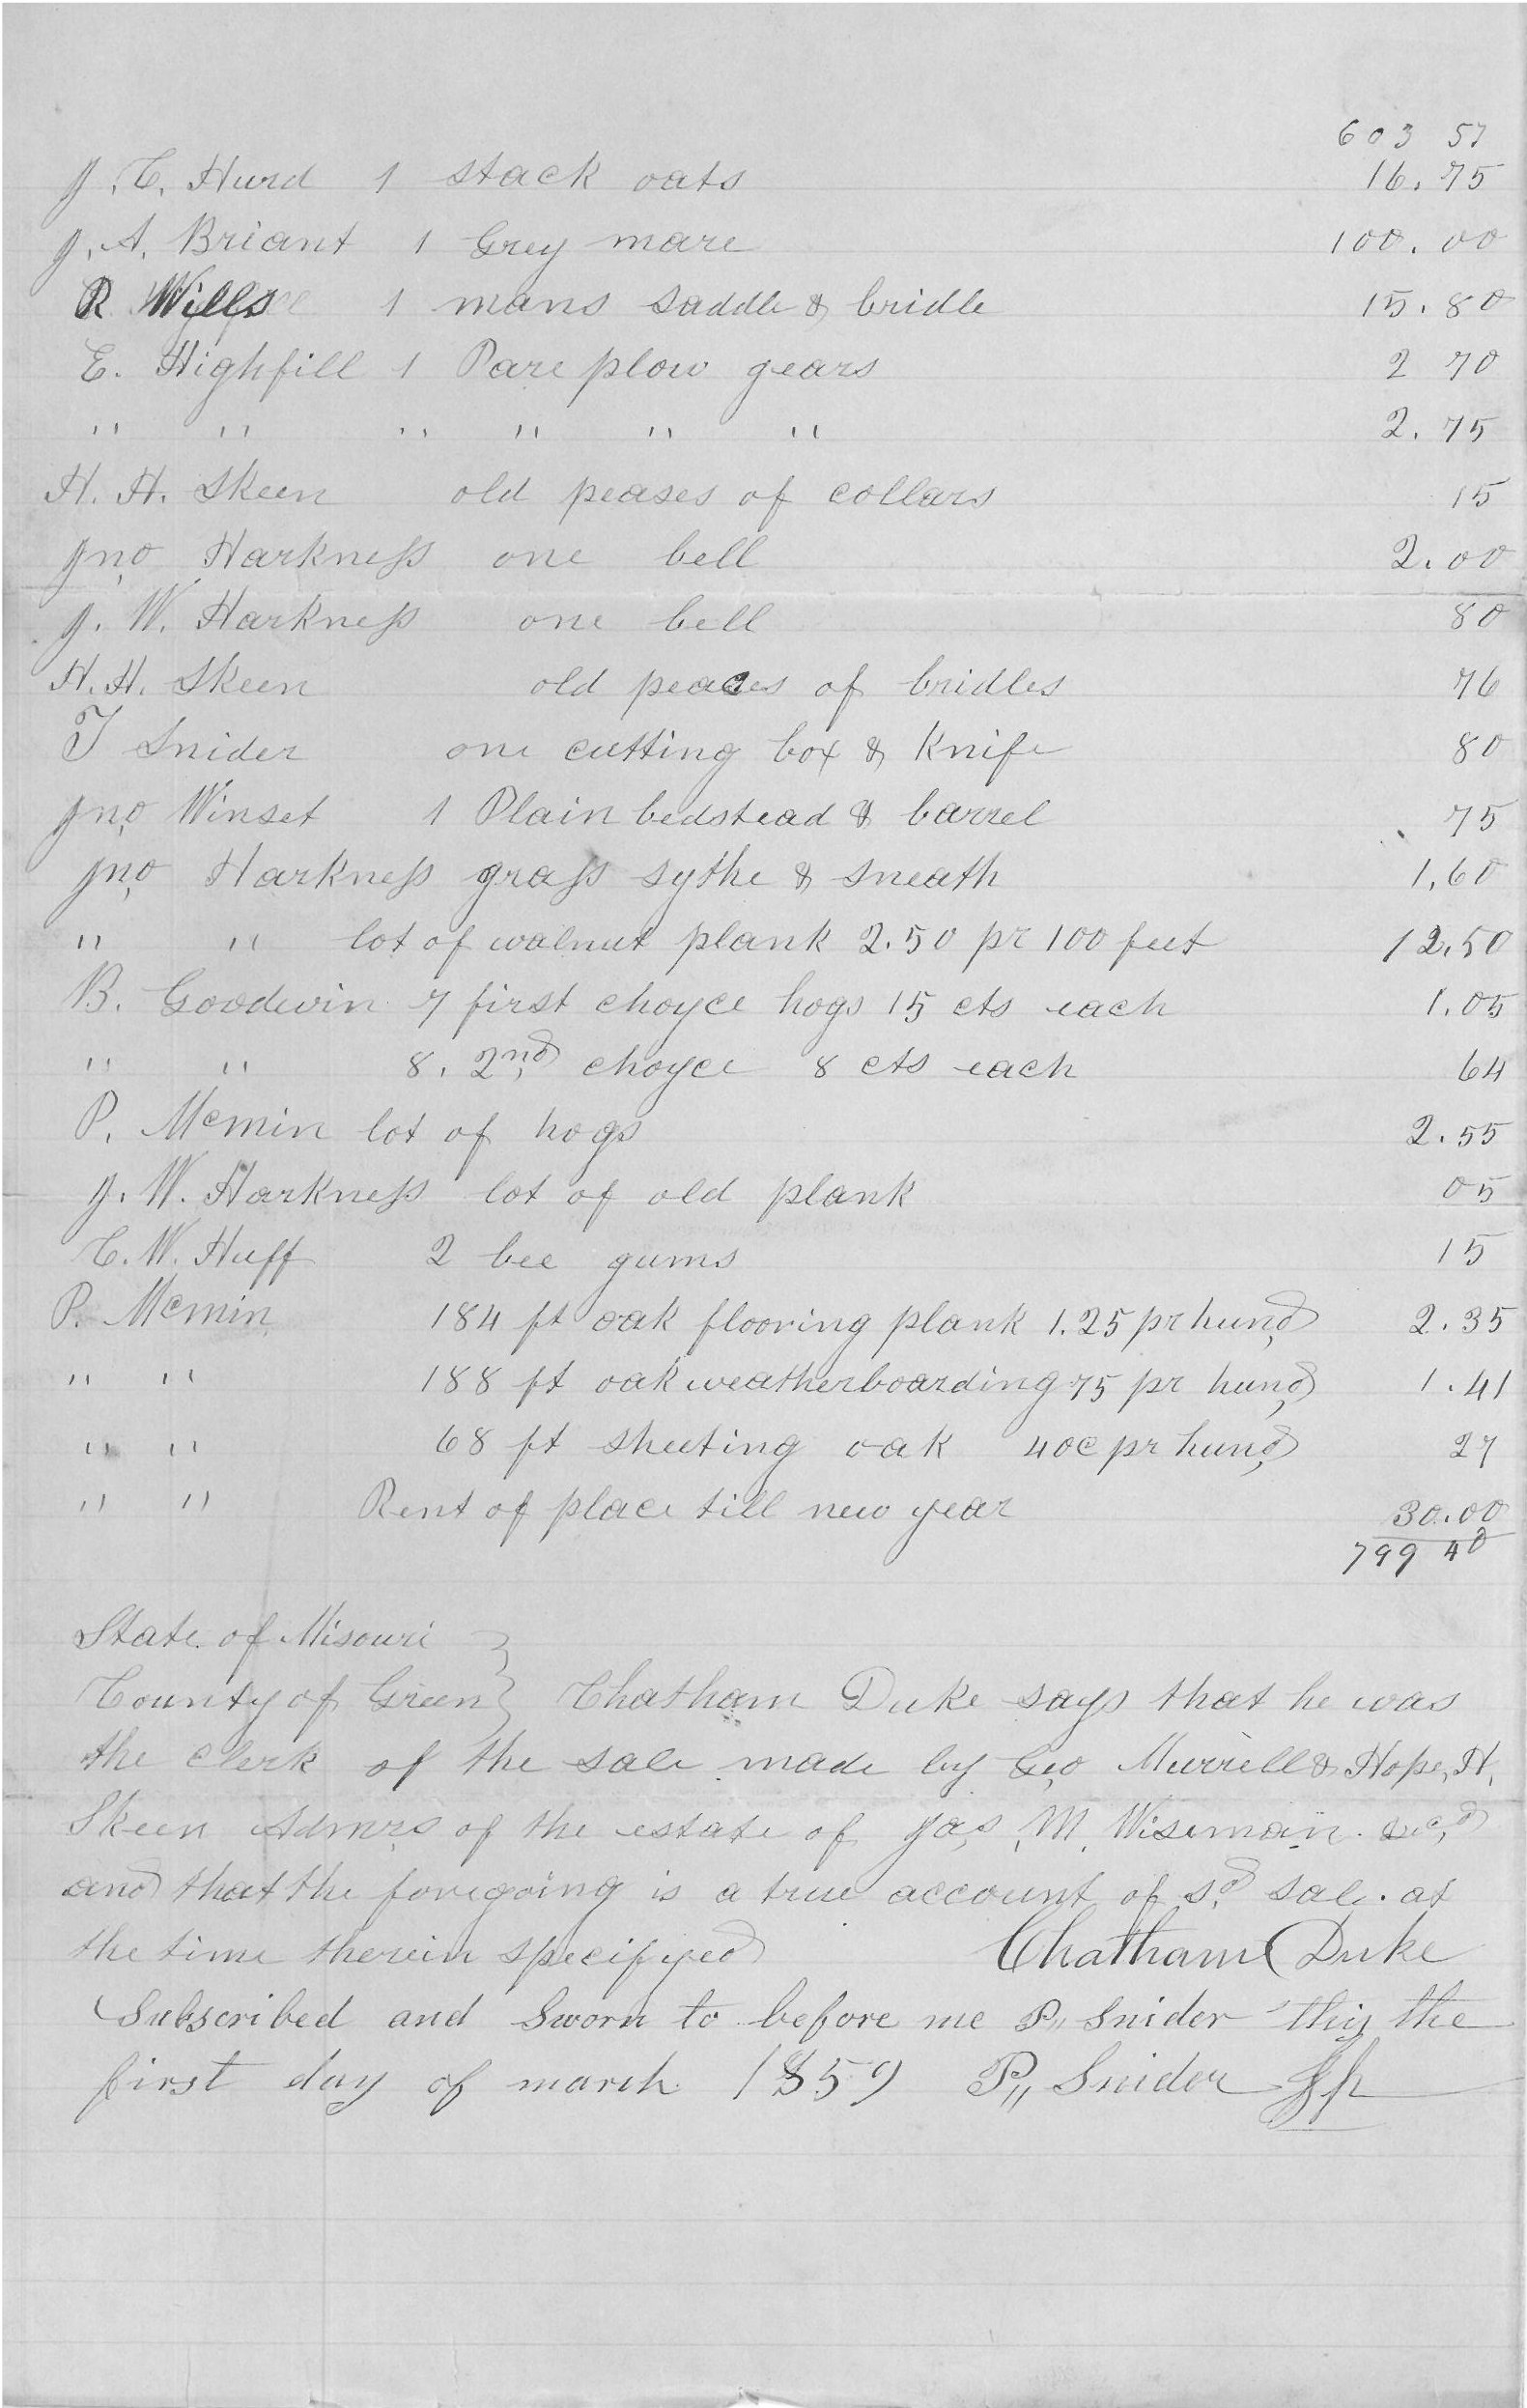 603 57
J. C. Hurd 1 stack oats 16.75
J. A. Briant 1 Grey mare 100.00
R Wills 1 mans saddle & bridle 15.80
E. Highfill 1 Pare plow gears 2 70
" " " " " " 2.75
H. H. Skeen old peases of collars 15
Jno Harkness one bell 2.00
J. W. Harkness one bell 80
H. H. Skeen old peaces of bridles 76
T Snider one cutting box & Knife 80
Jno Winset 1 Plain bedstead & barrel 75
Jno Harkness grass sythe & sneath 1.60
" " lot of walnut plank 2.50 pr 100 feet 12.50
B. Goodwin 7 first choyce hogs 15 cts each 1.05
" " 8. 2nd choyce 8 cts each 64
P. Mcmin lot of hogs 2.55
J. W. Harkness lot of old plank 05
C. W. Huff 2 bee gums 15
P. Mcmin 184 ft oak flooring plank 1.25 pr hund 2.35
" " 188 ft oak weatherboarding 75 pr hund 1.41
" " 68 ft sheeting oak 40c pr hund 27
" " Rent of place till new year 30.00
799 40
State of Misouri }
County of Green } Chatham Duke says that he was
the clerk of the sale made by Geo Murrell & Hope, H.
Skeen Admrs of the estate of Jas, M. Wiseman. decd
and that the foregoing is a true account of sd sale. at
the time therein specifyed Chatham Duke
Subscribed and Sworn to before me P,, Snider this the
first day of march 1859 P,, Snider Jp